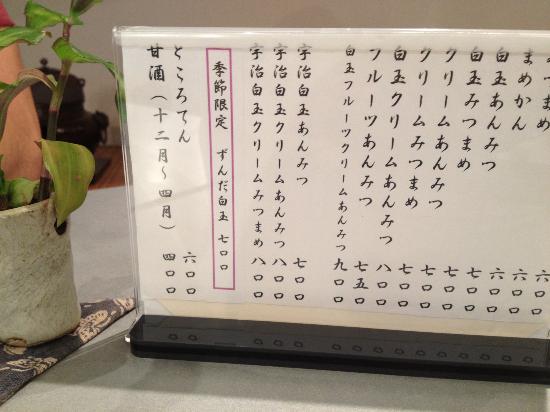 六〇〇
みつまめ 六〇〇
まめかん 六〇〇
白玉あんみつ 七〇〇
白玉みつまめ 七〇〇
クリームあんみつ 七〇〇
クリームみつまめ 七〇〇
白玉クリームあんみつ 八〇〇
フルーツあんみつ 七五〇
白玉フルーツクリームあんみつ 九〇〇
宇治白玉あんみつ 七〇〇
宇治白玉クリームあんみつ 八〇〇
宇治白玉クリームみつまめ 八〇〇
季節限定 ずんだ白玉 七〇〇
ところてん 六〇〇
甘酒（十二月〜四月） 四〇〇